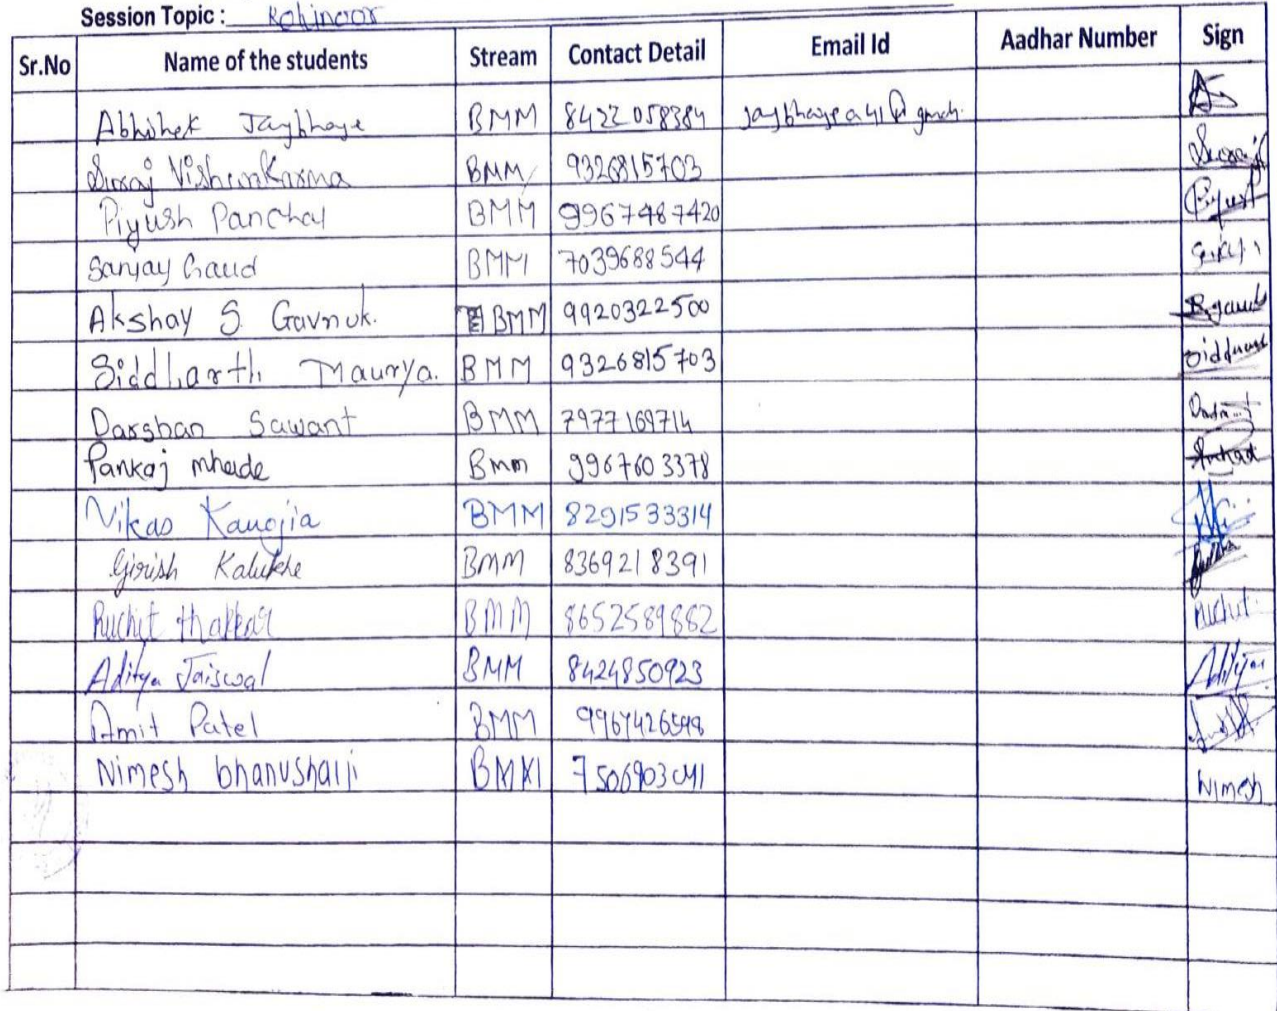 Session Topic : Kohinoor
Sr.No Name of the students Stream Contact Detail Email Id Aadhar Number Sign
Abhishek Jaybhaye BMM 8422058384
Suraj Vishwakarma BMM 9326815703 Suraj
Piyush Panchal BMM 9967487420 Piyush
Sanjay Gaud BMM 7039688544
Akshay S. Gavnuk. BMM 9920322500
Siddharth Maurya. BMM 9326815703
Darshan Sawant BMM 7977169714
Pankaj mhade Bmm 9967603378
Vikas Kanojia BMM 8291533314
Girish Kalukhe BMM 8369218391
Ruchit thakkar BMM 8652589882 Ruchit
Aditya Jaiswal BMM 8424850923 Aditya
Amit Patel BMM
Nimesh bhanushali BMM Nimesh